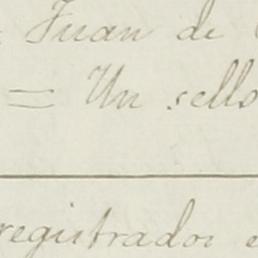 Juan de
= Un sello
registrador e